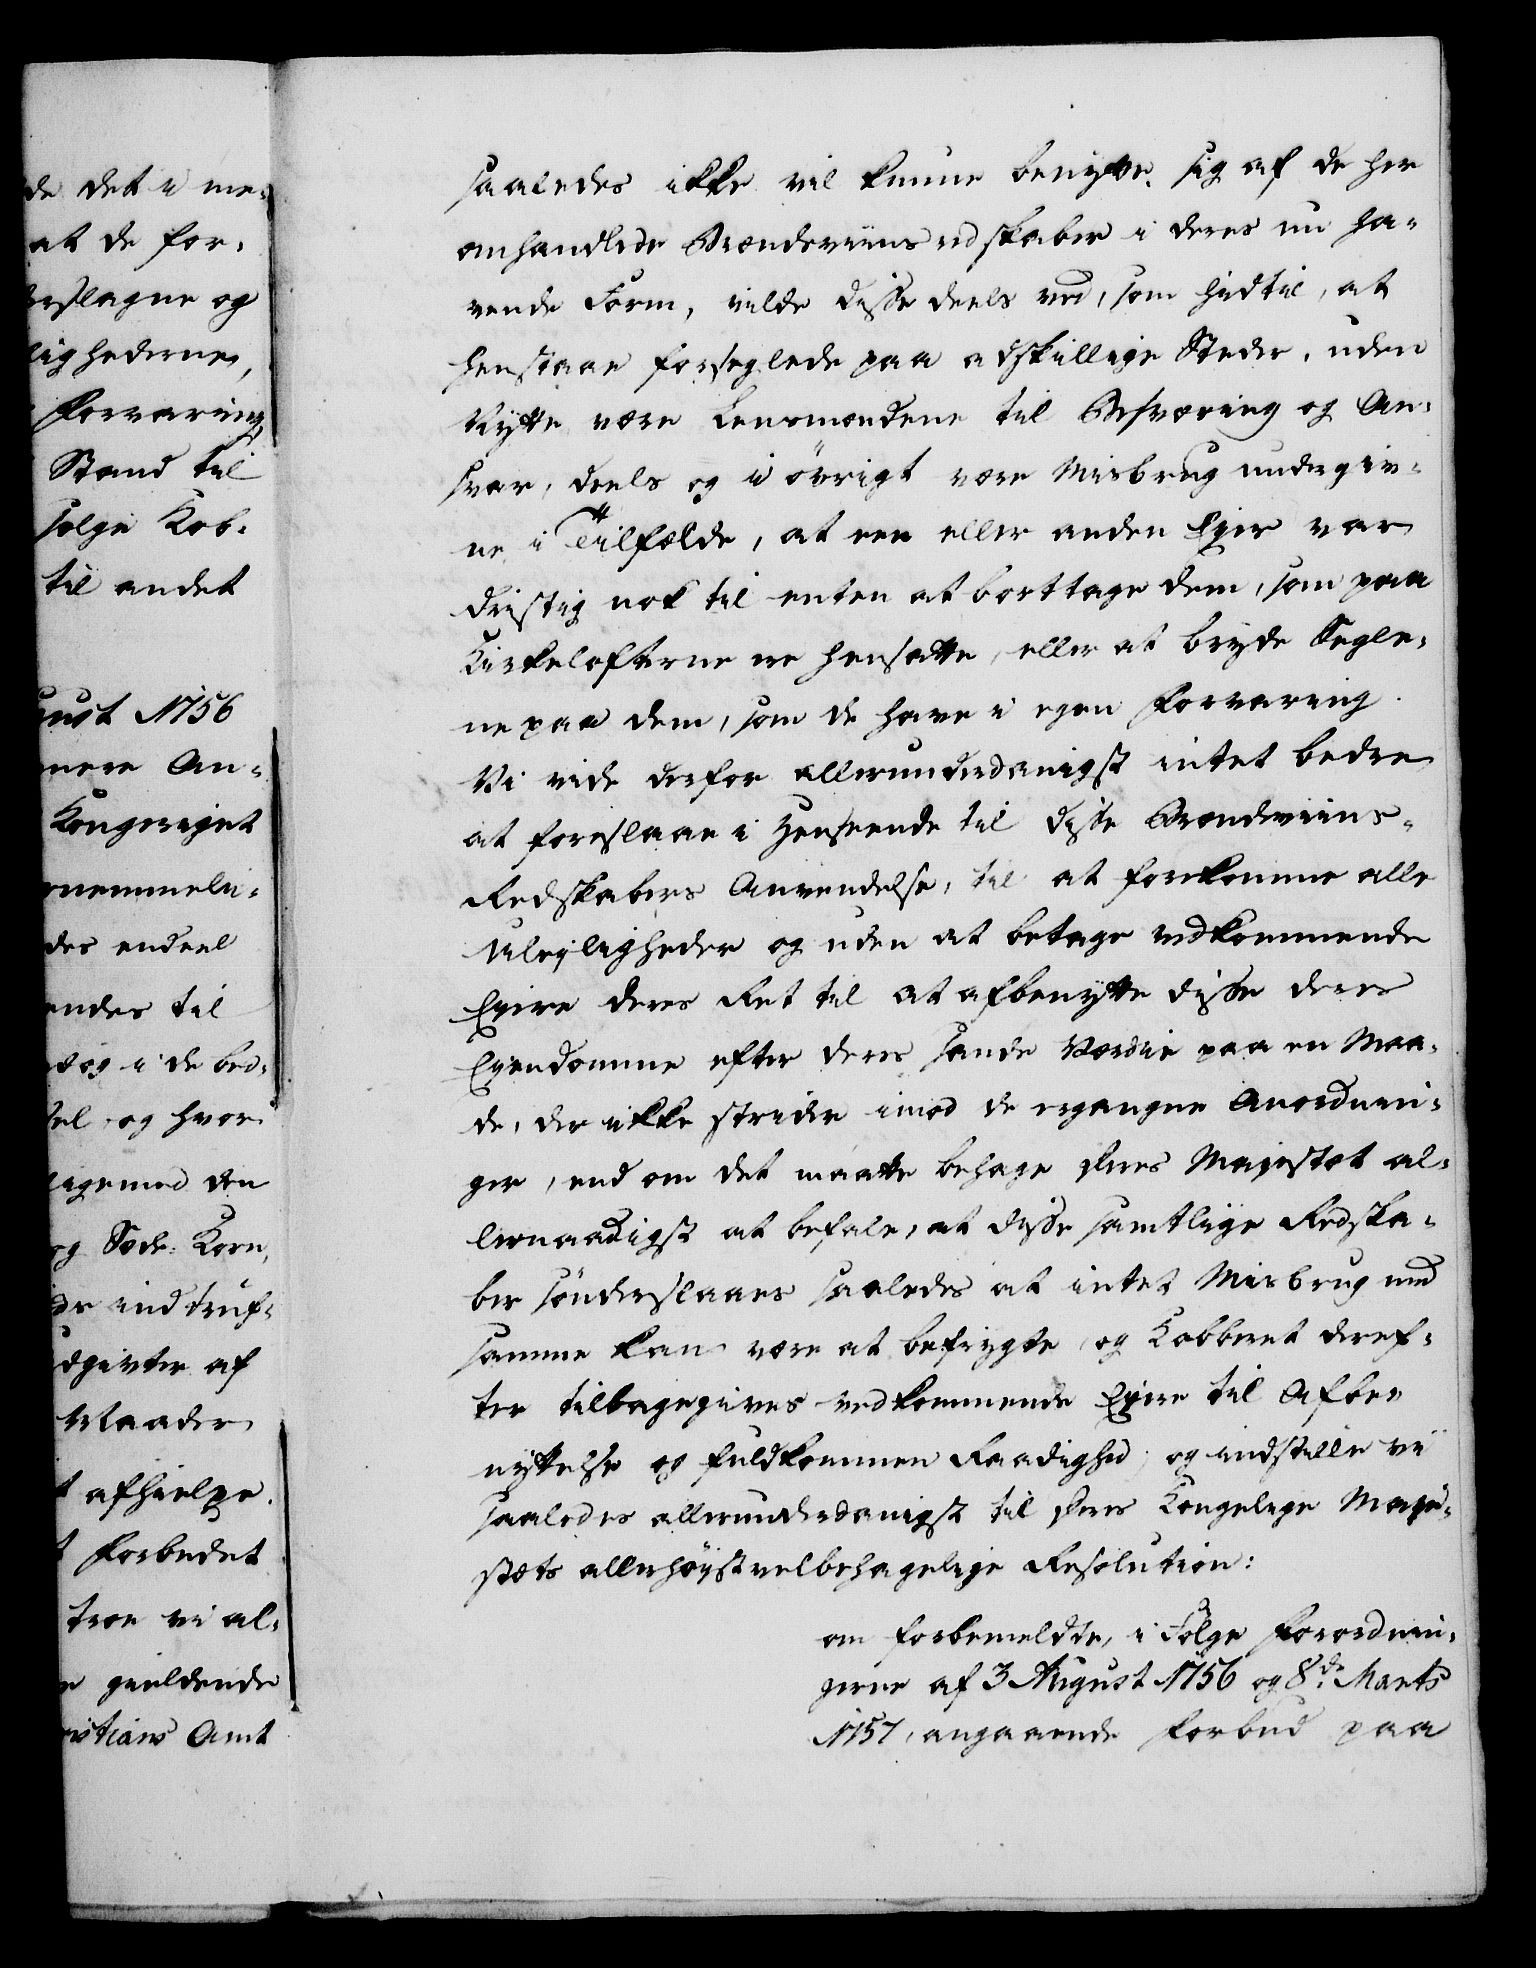 de det i me-
at de for-
erslagne og
lighederne,
Forvaring
Stand til
sælge Kob-
til andet
gust 1756
mere An-
Kongeriget
rnemmeli-
des endeel
endes til
tog i de bed-
sel og hvor
ligemed den
og Sæde-Korn,
de indtruf-
dgivter af
Maader
t afhielpe.
t forbudet
troe vi al-
e gieldende
istians Amt
saaledes ikke vil kunne benytte sig af de her
omhandlede Brændeviinsredskaber i deres nu ha-
vende Form, vilde disse deels ved, som hidtil, at
henstaae forseglede paa adskillige Steder, uden
Nytte være Lensmændene til Besværing og An-
svar, deels og i övrigt være Misbrug undergiv-
ne i Tilfælde, at een eller anden Eier var
dristig nok til enten at borttage dem, som paa
Kirkelofterne ere hensatte, eller at bryde Segle-
ne paa dem, som de have i egen Forvaring.
Vi vide derfor allerunderdanigst intet bedre
at foreslaae i Henseende til disse Brændeviins-
Redskabers Anvendelse, til at forekomme alle
Uleiligheder og uden at betage vedkommende
Eiere deres Ret til at afbenytte disse deres
Eiendomme efter deres sande Værdie paa en Maa-
de, der ikke strider imod de ergangne Anordnin-
ger, end om det maatte behage Deres Majestæt al-
lernaadigst at befale, at disse samtlige Redska-
ber sönderslaaes saaledes at intet Misbrug med
samme kan være at befrygte, og Kobberet deref-
ter tilbagegives vedkommende Eiere til Afbe-
nyttelse og fuldkommen Raadighed; og indstille vi
saaledes allerunderdanigst til Deres Kongelige Maje-
stæts allerhöistvelbehagelige Resolution:
om forbemeldte, i Fölge Forordnin-
gerne af 3 August 1756 og 8de Marts
1757, angaaende Forbud paa